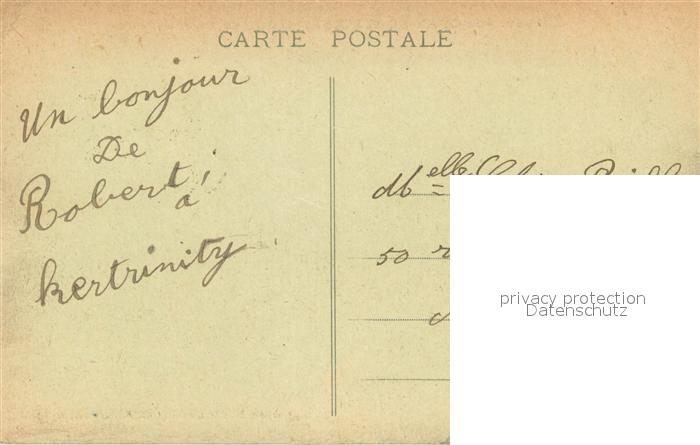 CARTE POSTALE
Un bonjour
De
Robert,
à
kertrinity
Melle
50
privacy protection
Datenschutz